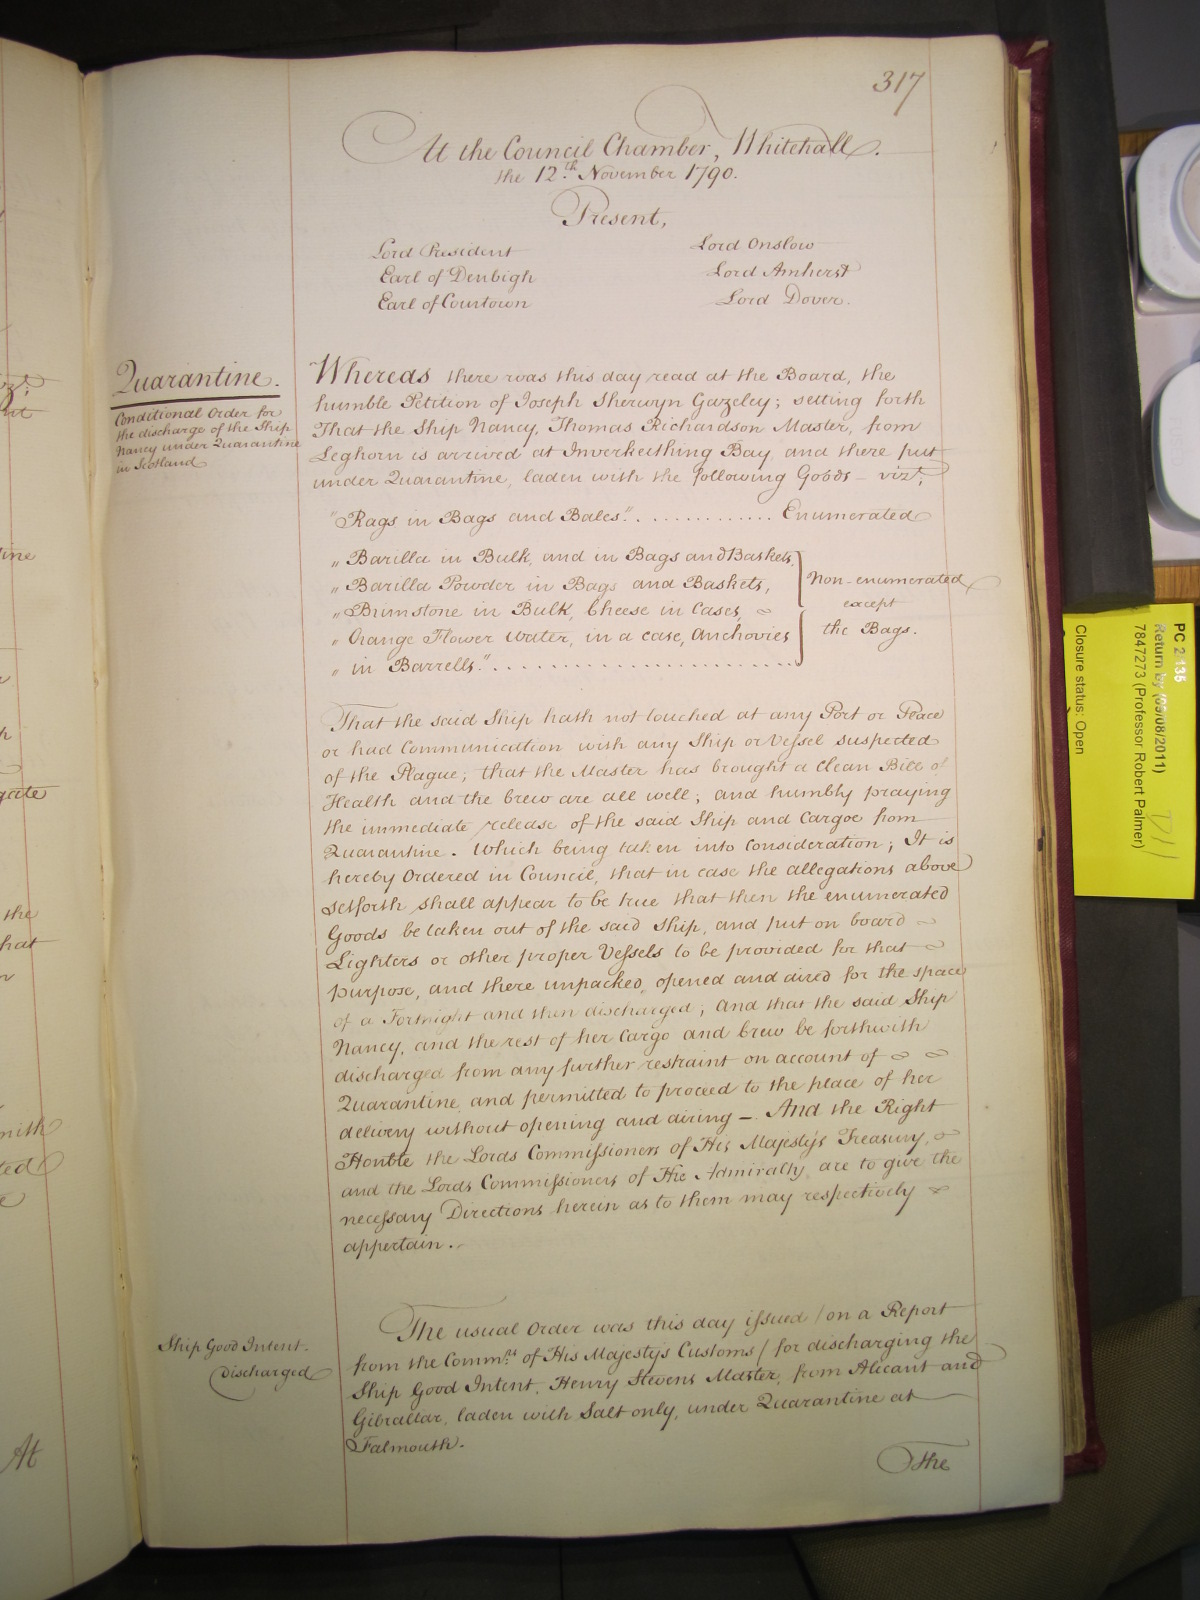 317
At the Council Chamber, Whitehall.
the 12th November 1790.
Present,
Lord President
Earl of Denbigh
Earl of Courtown
Lord Onslow
Lord Amherst
Lord Dover.
Quarantine.
Conditional Order for
the discharge of the Ship
Nancy under Quarantine
in Scotland
Whereas there was this day read at the Board, the
humble Petition of Joseph Sherwyn Gazeley; setting forth
That the Ship Nancy, Thomas Richardson Master, from
Leghorn is arrived at Inverkeithing Bay, and there put
under Quarantine, laden with the following Goods – vizt,
"Rags in Bags and Bales". . . . . . . . . . . . . Enumerated
„ Barilla in Bulk, and in Bags and Baskets,
„ Barilla Powder in Bags and Baskets,
„ Brimstone in Bulk, Cheese in Cases,
„ Orange Flower Water, in a case, Anchovies
„ in Barrells." . . . . . . . . . . . . . . . . . . . . . . .
Non-enumerated
except
the Bags.
That the said Ship hath not touched at any Port or Place
or had Communication with any Ship or Vessel suspected
of the Plague; that the Master has brought a Clean Bill of
Health and the Crew are all well; and humbly praying
the immediate release of the said Ship and Cargoe from
Quarantine. Which being taken into Consideration; It is
hereby Ordered in Council, that in case the allegations above
setforth shall appear to be true that then the enumerated
Goods be taken out of the said Ship, and put on board
Lighters or other proper Vessels to be provided for that
purpose, and there unpacked, opened and aired for the space
of a Fortnight and then discharged; And that the said Ship
Nancy, and the rest of her Cargo and Crew be forthwith
discharged from any further restraint on account of
Quarantine and permitted to proceed to the place of her
delivery without opening and airing – And the Right
Honble the Lords Commissioners of His Majesty's Treasury,
and the Lords Commissioners of the Admiralty are to give the
necessary Directions herein as to them may respectively
appertain.
Ship Good Intent.
Discharged
The usual Order was this day issued / on a Report
from the Commrs of His Majestys Customs / for discharging the
Ship Good Intent, Henry Stevens Master, from Alicant and
Gibraltar, laden with Salt only, under Quarantine at
Falmouth.
The
At
PC 2 135
Return by (05/08/2011)
7847273 (Professor Robert Palmer)
Closure status: Open